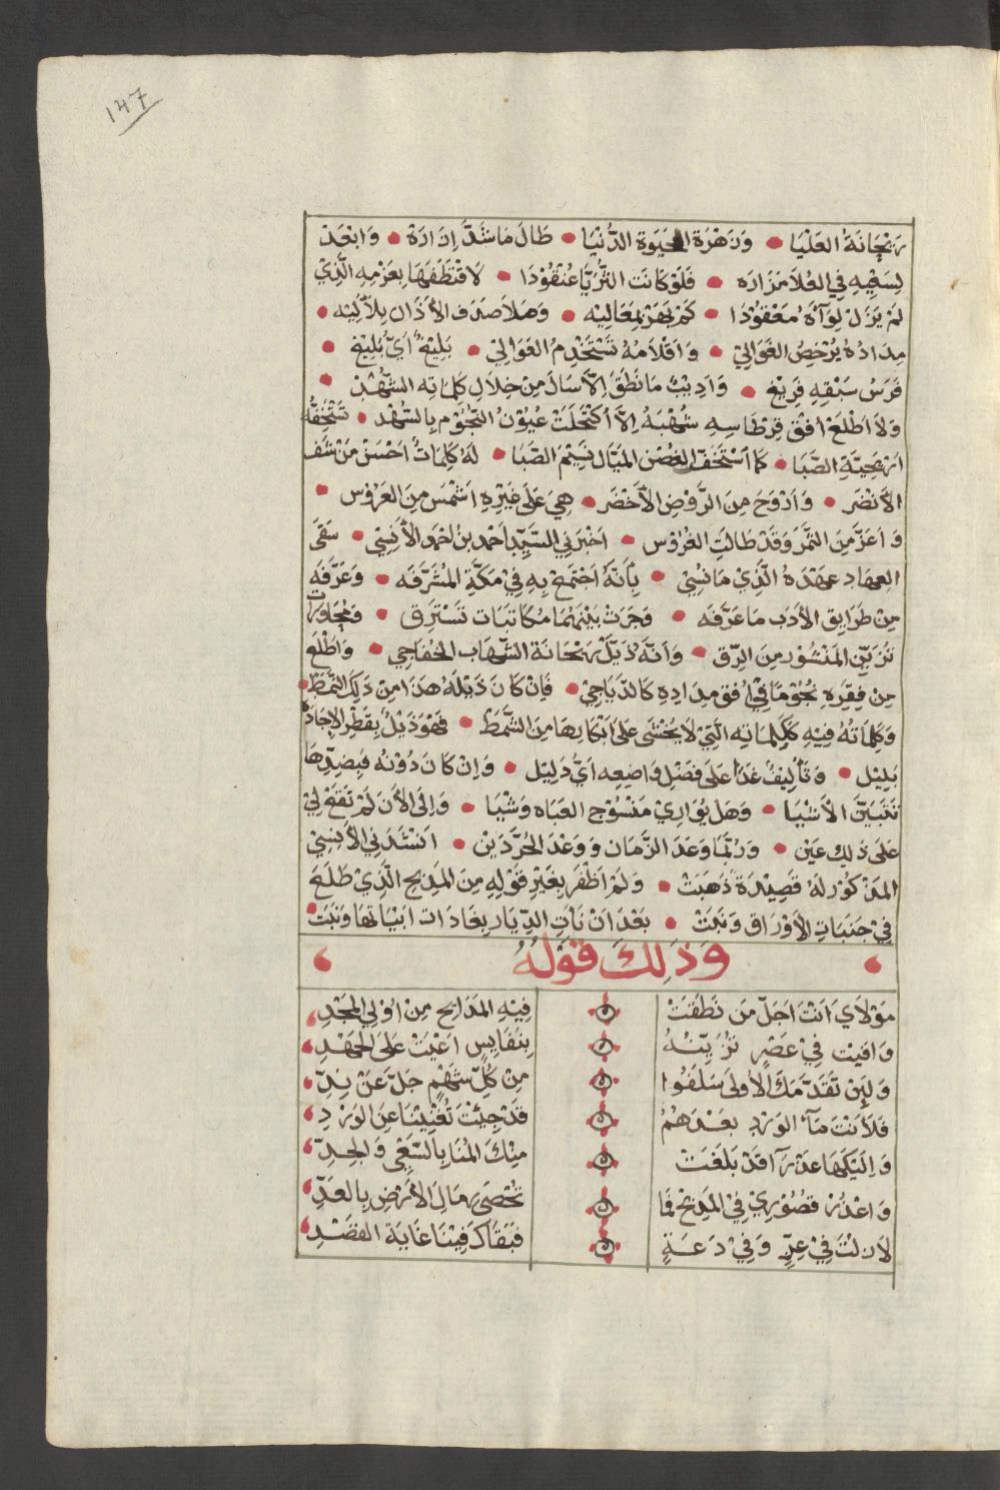 ١٤٧
رَيْحَانَةُ العَلْيَا • وَزَهْرَةُ الحَيَوةِ الدُّنْيَا • طَالَ مَا شَدَّ اِزَارَهْ • وَابْعَدَ
لِسَعْيِهِ فِي العُلَا مَزَارَه • فَلَوْ كَانَت الثُّرَيَّا عُنْقُوْدَا • لَاقْتَطَفَهَا بِعَزْمِهِ الَّذِيْ
لَمْ يَزَلْ لِوَآؤهُ مَعْقُوْدَا • كَمْ بَهَرَ بِمَعَالِيْه • وَمَلَا صَدَفَ الأذَانِ بِلَآلِيْه •
مِدَادُهُ يُرْخِصُ الغَوَالِيْ • وَاقْلَامُهُ تَسْتَخْدِمُ العَوَالِيْ • بَلِيْغٌ اَيُّ بَلِيْغ •
فَرَسُ سَبْقِهِ فَرِيْغ • وَاَدِيْبٌ مَا نَطَقَ اِلَّا سَالَ مِنْ خِلَالِ كَلِمَاتِه الشُّهْدْ •
وَلَا اطْلَعَ اُفْق قِرْطَاسِهِ شُهْبَهُ اِلَّا اكْتَحَلَتْ عُيُوْنُ النُّجُوْمِ بِالسُّهْد • تَسْتَخِفُّهُ
ارْيَحِيَّةِ الصِّبَا • كَمَا اسْتَخَفَّ الغُصْنَ المَيَّالَ نَسِيْمُ الصَّبَا • لَهُ كَلِمَاتٌ اَحْسَنُ مِنْ شَنَفِ
الأنْضَر • وَاَرْوَحَ مِنَ الرَّوْضِ الأَخْضَر • هِيَ عَلَى غَيْرِهِ اَشْمَسُ مِنَ العَرُوْس •
وَاَعَزُّ مِنَ الثَّمَرِ وَقَدْ طَالَتِ الغُرُوْس • اَخْبَرَنِي السَّيِّد احمد بنُ احمد الآنِسِيْ • سَقَى
العِهَاد عَهْدَهُ الَّذِيْ مَا نُسِيْ • بِأَنَّهُ اجْتَمَعَ بِهِ فِيْ مَكَّةِ المُشَرَّفَه • وَعَرَّفَهُ
مِنْ طَرَايِقِ الأدَب مَا عَرَّفَه • وَجَرَتْ بَيْنَهُمَا مُكَاتَبَات تَسْتَرِق • وَمُجَاوَرَات
تُزَيِّن المَنْشُوْر مِنَ الرِّق • وَانَّهُ ذَيَّلَ رَيْحَانَةَ الشِّهَابِ الخُفَاجِي • وَاَطْلَعَ
مِنْ فِقَرِهِ نُجُوْمًا فِيْ اُفُق مِدَادِهِ كَالدَّيَاجِيْ • فَاِنْ كَانَ ذَيْلُهُ هَذَا مِنْ ذَلِكَ النَّمَطْ •
وَكَلِمَاتُهُ فِيْهِ كَكَلِمَاتِه الَّتِيْ لَا يُخْشَى عَلَى اَبْكَارِهَا مِنَ الشَّمَطْ • فَهُوَ ذَيْلٌ بِقَطْرِ الإِجَادَهْ
بَلِيْل • وَتَأْلِيْفٌ غَدَا عَلَى فَضْلِ وَاضِعِه اَيُّ دَلِيْل • وَاِنْ كَانَ دُوْنَهُ فَبِضِدِّهَا
تَتَبَيَّن الأَشْيَا • وَهَلْ يُوَارِيْ مَنْسُوْج العَبَاه وَشْيَا • وَاِلَى الأنَ لَمْ تَقَعْ لِيْ
عَلَى ذَلِكَ عَيْن • وَرُبَّمَا وَعَدَ الزَّمَان وَوَعْدُ الحُرِّ دَيْن • اَنْشَدَنِي الأَنِسِيْ
المَذْكُوْر لَهُ قَصِيْدَةً ذَهَبَتْ • وَلَمْ اَظْفَرَ بِغَيْرِ قَوْلِهِ مِنَ المَدِيْحِ الَّذِيْ طَلَعَ
فِيْ جَنَبَاتِ الأَوْرَاقِ وَنَبَتْ • بَعْدَ اَنْ نَأَتِ الدِّيَار بِغَادَات ابْيَاتِهَا وَنَبَتْ •
وَذَلِكَ قَوْلُهُ
مَوْلَايَ اَنْتَ اَجَلُّ مَن نَطَقَتْ فِيْهِ المَدَايِح مِنْ اُوْلِي المَجْدِ
وَافَيْتَ فِيْ عَصْرٍ تُزَيِّنُهُ بِنَفَايِسٍ اَعْيَتْ عَلَى الجَهْدِ
وَلَئِنْ تَقَدَّمَكَ الأُولَى سَلَفُوا مِنْ كُلِّ شَهْمٍ جَلَّ عَنْ نِدِّ
فَلَأَنْتَ مَآءُ الوَرْدِ بَعْدَهُمُ قَدْ جِئْتَ تُغْنِيْنَا عَنِ الوَرْدِ
وَاِلَيْكَهَا عَذْرَآ قَدْ بَلَغَتْ مِنْكَ المُنَا بِالسَّعْيِ وَالجِدِّ
وَاعْذُرْ قُصُوْرِيْ فِيْ المَدِيْحِ فَمَا تُحْصَى رِمَالُ الأَرْضِ بِالعَدِّ
لَا زِلْتَ فِيْ عِزٍّ وَفِيْ دَعَةٍ فَبَقَاكَ فِيْنَا غَايَةُ القَصْدِ